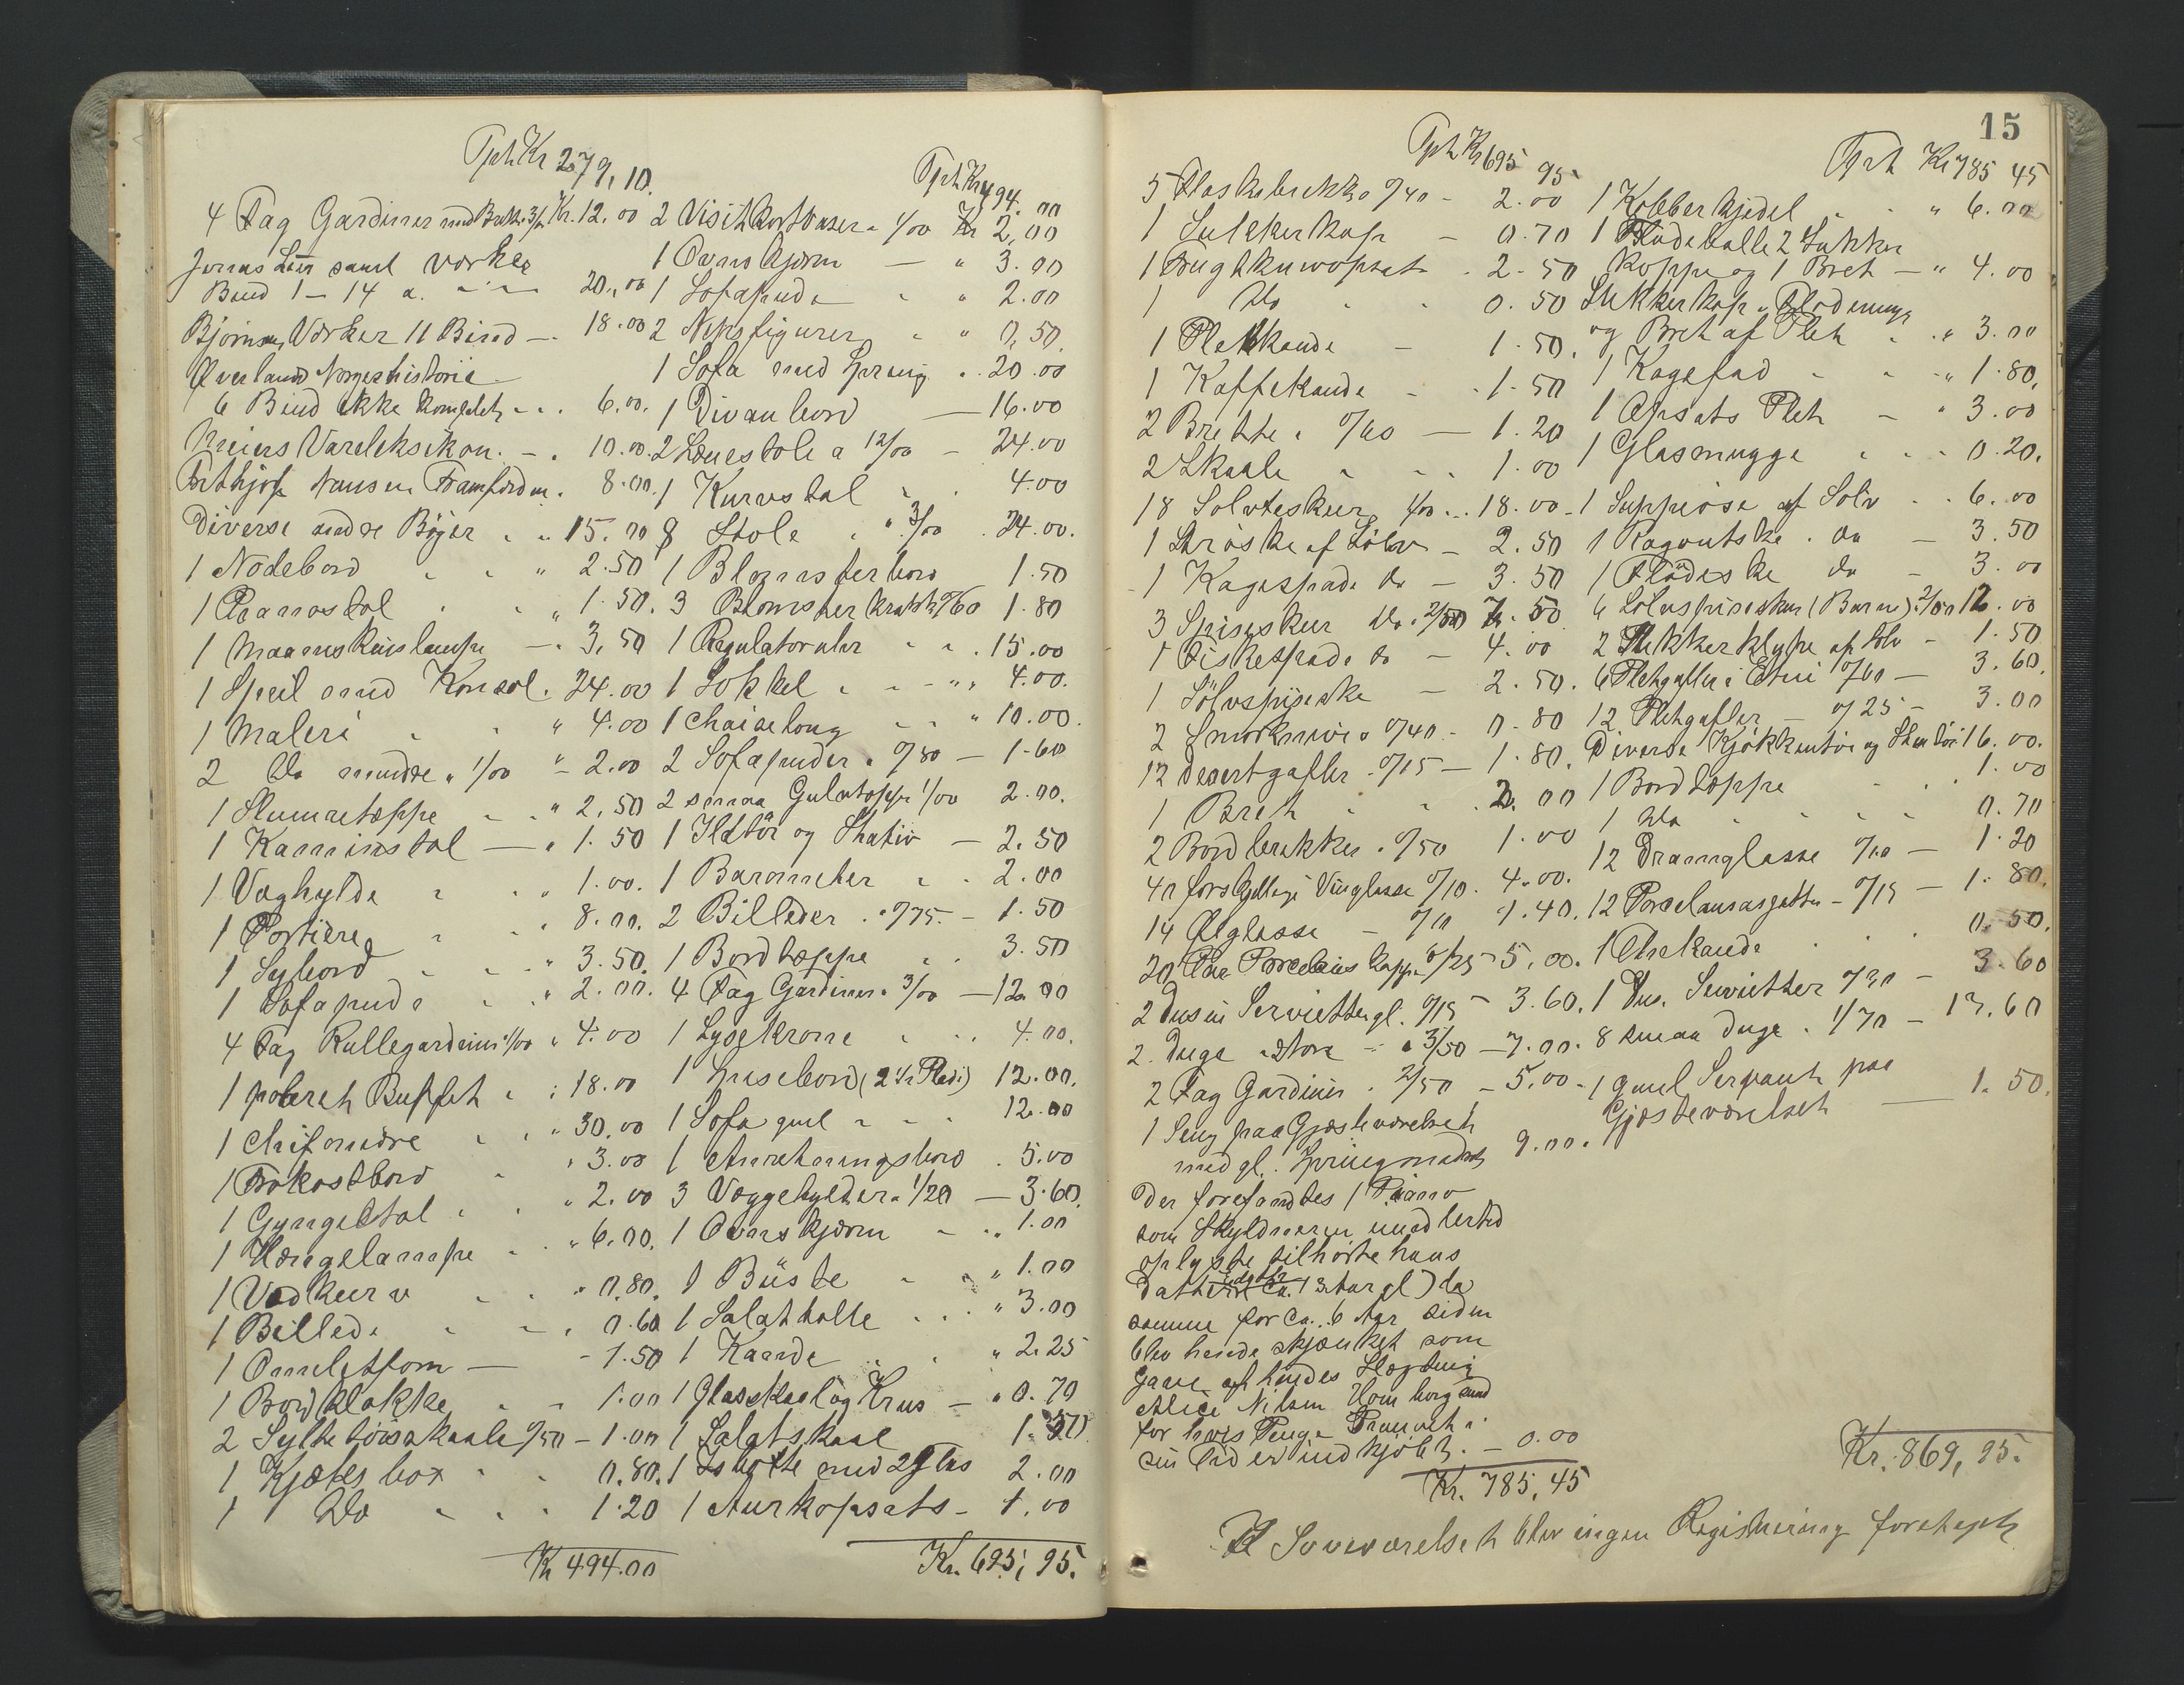 Tpt. Kr 279,10.
4 Fag Gardiner med Brikker 3/00 Kr. 12.00
Jonas Lies saml Værker
Bind 1-14 a. 20.00
Bjørnsons Værker 11 Bind - 18.00
Øverlands Norgeshistorie
6 Bind ikke komplet - 6.00.
Meiers Vareleksikon. - 10.00.
Frithjof Nansen Framfærden. 8.00.
Diverse andre Bøger " 15.00
1 Nodebord " 2.50
1 Pianostol " 1.50.
1 Maaneskinslampe - 3.50
1 Speil med Konsol. 24.00
1 Maleri " 4.00
2 Do mindre a 1/00 " 2.00
1 Slumretæppe " 2.50
1 Kaminstol - " 1.50
1 Væghylde " 1.00.
1 Portiere " 8.00.
1 Sybord " 3.50.
1 Sofapude " 2.00.
4 Fag Rullegardiner 1/00 " 4.00
1 poleret Buffet " 18.00
1 Chifoniére " 30.00
1 Frokostbord " 3.00
1 Gyngestol " 2.00
1 Hængelampe " 6.00.
1 Vedkurv " 0.80.
1 Billede " 0.60
1 Omeletform - 1.50
1 Bordklokke 1.00
2 Syltetøisskaale 0/50 - 1.00
1 Kjæksbox 0.80.
1 Do 1.20
Kr 494.00
Tpt. Kr 494.00
2 Visitkortvaser a 1/00 Kr 2,00
1 Ovnskjærm - " 3.00
1 Sofapude " 2.00
2 Nipsfigurer " 0,50
1 Sofa med Spring. 20.00
1 Divanbord - 16.00
2 Lænestole a 12/00 - 24.00
1 Kurvstol 4.00
8 Stole " 3/00 24.00.
1 Blomsterbord 1.50
3 Blomsterkrakke 0/60 1.80
1 Regulatoruhr 15.00
1 Sokkel " 4.00.
1 Chaiselong " 10.00.
2 Sofapuder a 0/80 - 1.60
2 smaa Gulvtæpper 1/00 2.00.
1 Ildtøi og Stativ - 2.50
1 Barometer 2.00
2 Billeder a 0/75 - 1.50
1 Bordtæppe 3.50
4 Fag Gardiner a 3/00 - 12.00
1 Lysekrone 4.00.
1 Spisebord (2 ir Pladi) 12.00.
1 Sofa gml 12.00
1 Anretningsbord 5.00
3 Væggehylder a 1/20 - 3.60
1 Ovnskjærm 1.00
1 Büste " 1.00
1 Salatbolle " 3.00
1 Kande " 2.25
1 Glasskaal og Krus - " 0.70
1 Salatskaal 1.50
1 med 2 Glas 2.00
1 opsats - 1.00
Kr. 695,95.
15
Tpt Kr 695 95
5 Flaskebrikke 0/40 - 2.00
1 Sukkerkop - 0.70
1 Frugtknivopsats 2.50
1 Do 0.50
1 Pletkande - 1.50.
1 Kaffekande 1.50
2 Brette a 0/60 - 1.20
2 Skaale 1.00
18 Sølvteskeer 1/00 18.00
1 Strøske af Sølv - 2.50
1 Kagespade do - 3.50
3 Spiseskeer do. 2/50 7.50
1 Fiskespade do - 4.00
1 Sølvspiseske - 2.50.
2 Smørknive a 0/40 - 0.80
12 Desertgafler 0/15 - 1.80.
1 Bret 2.00
2 Bordbrikker 0/50 1.00
40 forskjellige Vinglasse 0/10. 4.00.
14 Ølglasse - 0/10 1.40.
20 Par Porcelæns kopper 0/25 - 5.00.
2 Dusin Servietter gl. 0/15 - 3.60.
2. Duge store - a 3/50 - 7.00.
2 Fag Gardiner. 2/50 - 5.00
1 Seng paa Gjæsteværelset
med gl. Springmadrats 9.00.
Der forefandtes 1 Piano
som Skyldneren imidlertid
oplyste tilhørte hans
Datter (ca. 13 Aar gl) da
samme for ca. 6 Aar siden
blev hende skjænket som
Gave af hendes Slægtning
Alice Nilsen Homborgsund
for hvis Penge Pianoet i
sin Tid er indkjøbt. - 0.00
Kr. 785,45
Tprt Kr 785 45
1 Kobberkjedel " 6.00
1 Flødebolle 2 Sukker
kopper og 1 Bret - " 4.00
Sukkerkop, Flødemugge
og Bret af Plet " 3.00
1 Kagefad " 1.80.
1 Opsats Plet - " 3.00
1 Glasmugge 0.20.
1 Suppeøse af Sølv 6.00
1 Ragoutske. do - 3.50
1 Flødeske do - 3.00
6 Sølvspiseskeer (Barne) 2/00 12.00
2 Sukkerklype af Sølv - 1.50
6 Pletgafler i Etui 0/60 - 3.60.
12 Pletgafler - 0/25 - 3.00
Diverse Kjøkkentøi og Stentøi 16.00.
1 Bordtæppe 1.00
1 Do 0.70
12 Dramglasse 0/10 - 1.20
12 Porcelænsasjetter - 0/15 - 1.80.
1 Thekande 0.50.
1 Dus. Servietter 0/30 - 3.60
8 smaa Duge. 1/70 - 13.60
1 gml Servant paa
Gjæsteværelset - 1.50.
Kr. 869,95.
I Soveværelset blev ingen Registrering foretaget